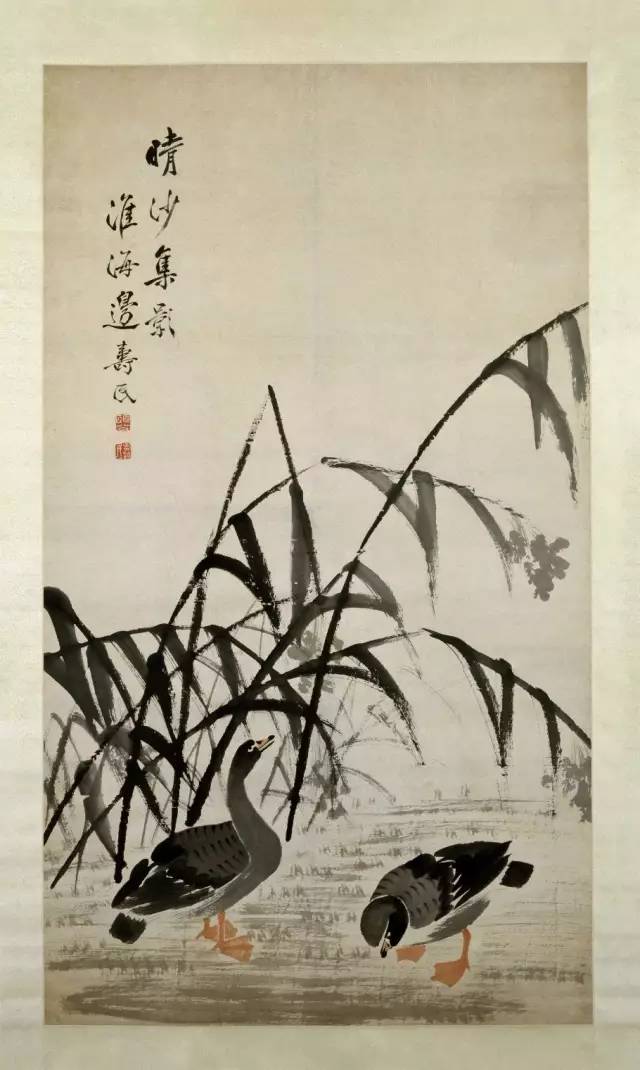 晴沙集影
淮海邊壽民